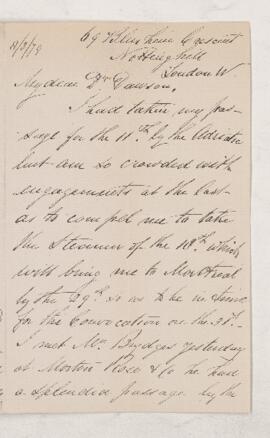 18/9/79
69 Crescent
Notting hill
London W.
My dear Dr Dawson,
I had taken my pas-
sage for the 11th by the Adriatic
but am so crowded with
engagements at the last
as to compel me to take
the Steamer of the 18th which
will bring me to Montreal
by the 29th so as to be in time
for the Convocation on the 3d.
I met Mr. Brydges yesterday
at Morton Rose & Co he had
a splendid passage by the